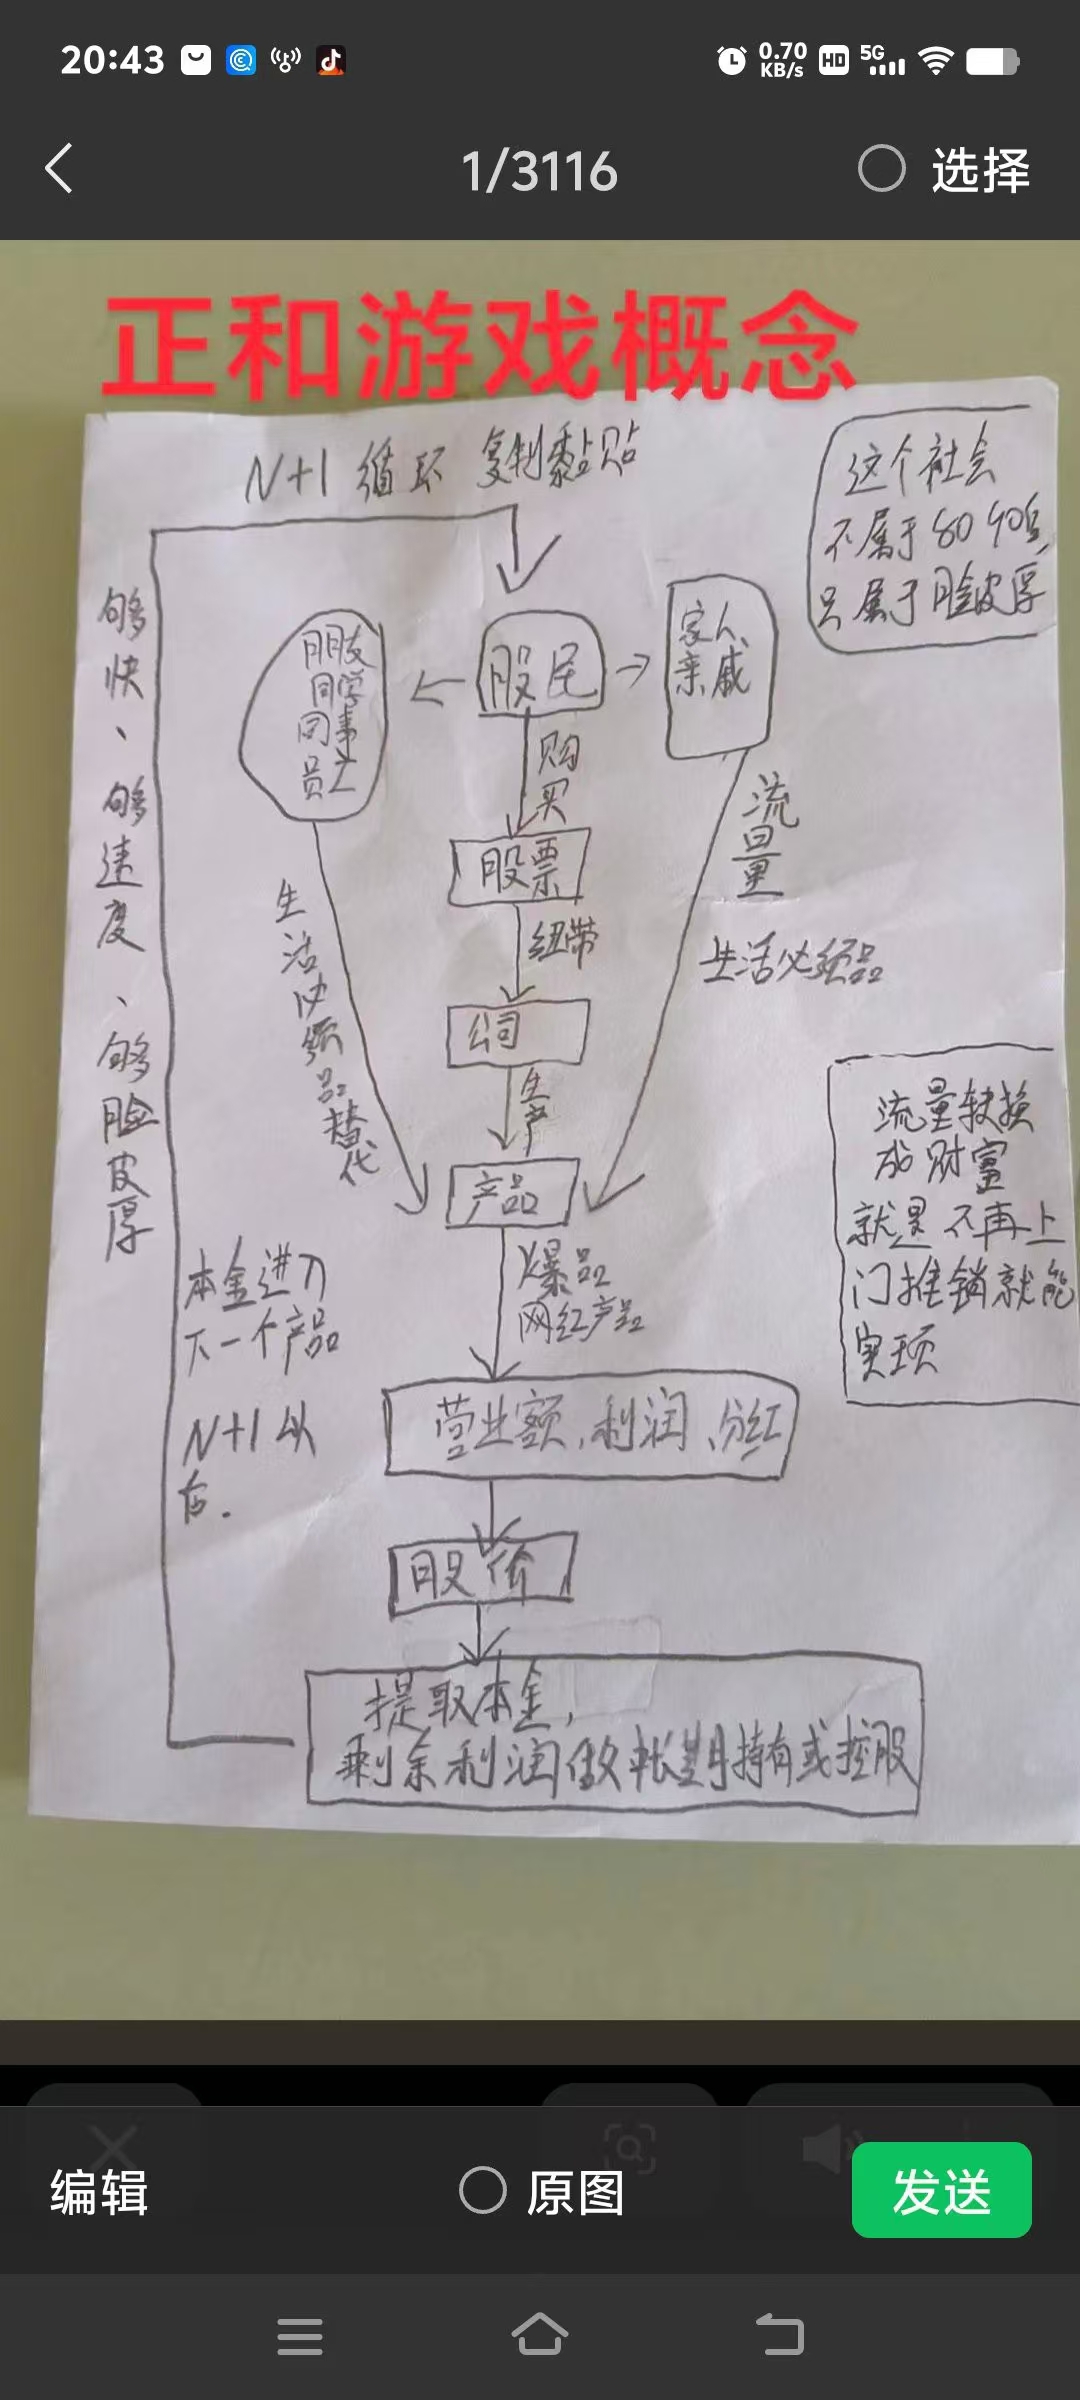 20:43
0.70
KB/s
HD
5G
1/3116
选择
正和游戏概念
N+1 循环 复制黏贴
这个社会
不属于80 90后,
只属于脸皮厚
够快、够速度、够脸皮厚
朋友
同学
同事
股民
家人、
亲戚
购买
股票
流量
纽带
生活必须品替代
生活必须品
公司
生产
产品
流量转换
成财富
就是不再上
门推销就能
实现
本金进入
下一个产品
爆品
网红产品
N+1以
后.
营业额、利润、分红
股价
提取本金,
剩余利润做长期持有或控股
编辑
原图
发送